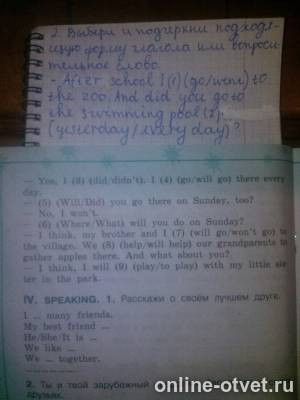 2. Выбери и подчеркни подходя-
щую форму глагола или вопроси-
тельное слово.
- After school I (1) (go/went) to
the zoo. And did you go to
the swimming pool (2)...
(yesterday/every day)?
— Yes, I (3) (did/didn't). I (4) (go/will go) there every
day.
— (5) (Will/Did) you go there on Sunday, too?
— No, I won't.
— (6) (Where/What) will you do on Sunday?
— I think, my brother and I (7) (will go/won't go) to
the village. We (8) (help/will help) our grandparents to
gather apples there. And what about you?
— I think, I will (9) (play/to play) with my little sis-
ter in the park.
IV. SPEAKING. 1. Расскажи о своём лучшем друге.
I ... many friends.
My best friend ...
He/She/It is ...
We like ...
We ... together.
2. Ты и твой зарубежный
друзьях.
online-otvet.ru